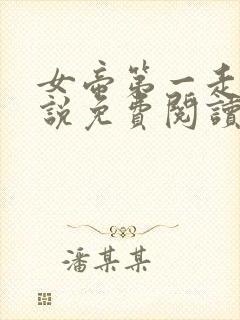 女帝第一走
說免費閱讀
潘某某